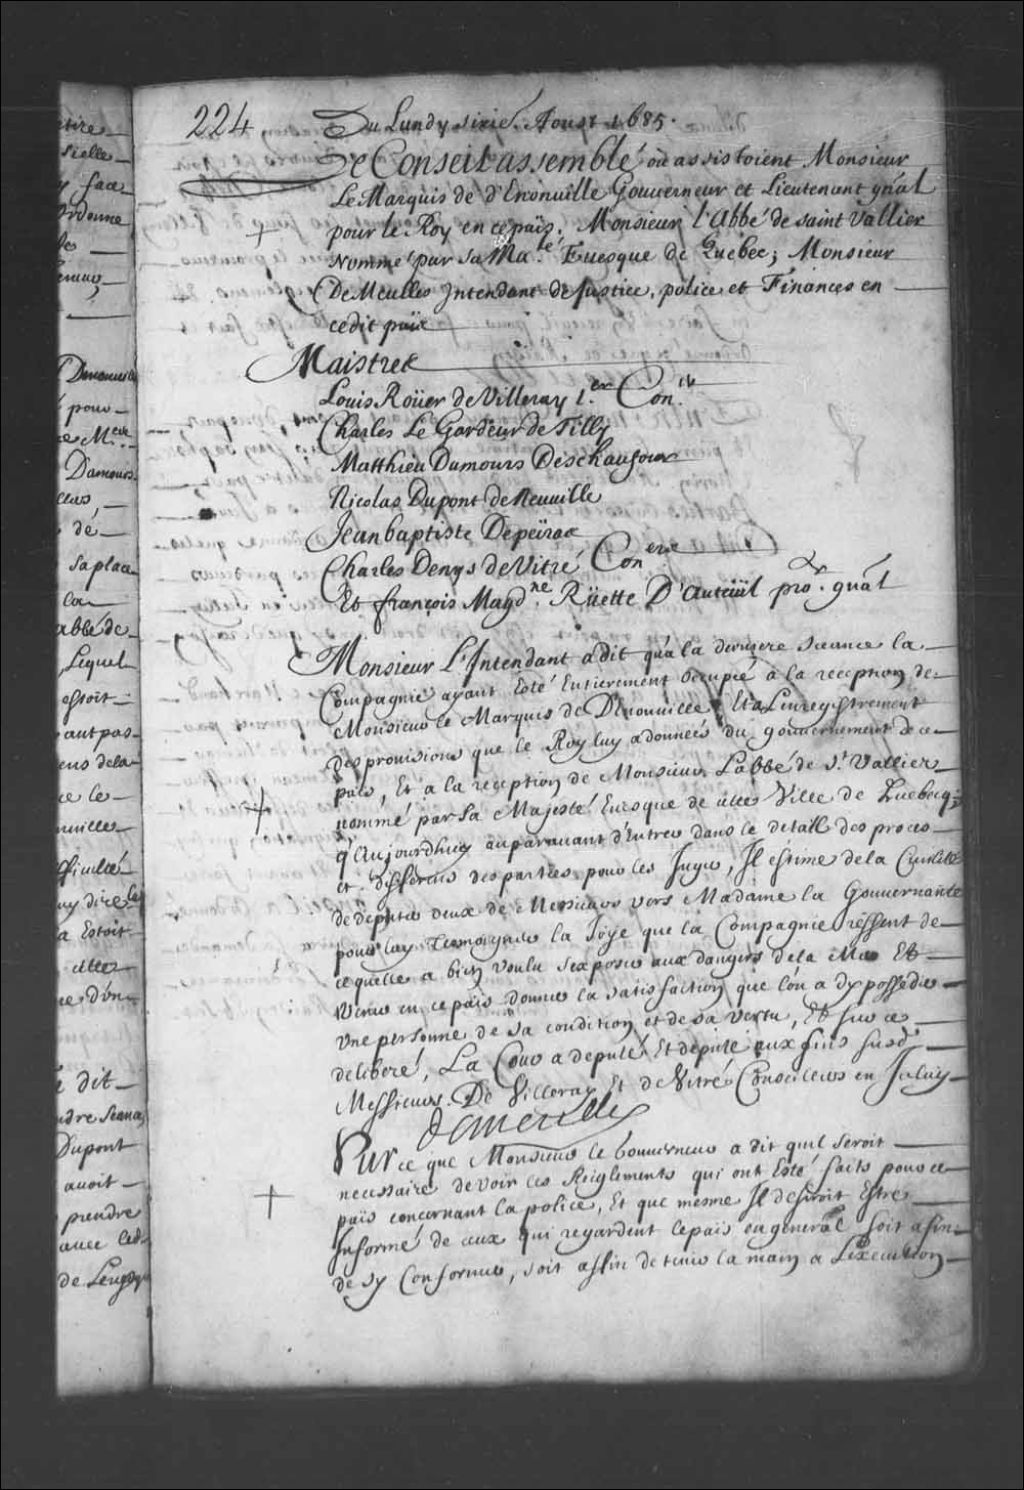 224
Du Lundy sixie. Aoust 1685.
Le Conseil assemblé où assistoient Monsieur
Le Marquis de d'Enonuille Gouuerneur et Lieutenant gñal
pour le Roy en ce païs, Monsieur l'Abbé de saint Vallier
Nommé par sa Ma.té Euesque de Quebec; Monsieur
De Meulles Jntendant de Justice, police et Finances en
cedit païs
Maistres
Louis Roüer de Villeray 1.er Con.er
Charles Le Gardeur de Tilly
Matthieu Damours Deschaufour
Nicolas Dupont de Neuuille
Jean baptiste Depeiras
Charles Denys de Vitré Con.ers
Et françois Magd.ne Rüette D'auteüil pro.r gñal
Monsieur L'Jntendant a dit qu'a la derniere seance la
Compagnie ayant Esté Entierement occupée à la reception de
Monsieur le Marquis de Denonuille Et a Lenregistrement
des prouisions que le Roy luy a données du gouuernement de ce
païs, Et à la reception de Monsieur Labbé de S.t Vallier
nommé par Sa Majesté Euesque de cette Ville de Quebecq;
q'Aujourdhuy auparauant d'entrer dans le detail des proces
et differens des parties pour les Juger, Jl estime de la Ciuilité
de deputer deux de Messieurs vers Madame la Gouuernante
pour luy tesmoigner la Joye que la Compagnie ressent de
ce quelle a bien voulu sexposer aux dangers de la Mer Et
venir en ce païs donner la satisfaction que lon a dy posseder
vne personne de sa condition et de sa vertu, Et sur ce
deliberé, La Cour a deputé Et depute aux fins susd.
Messieurs De Villeray Et de Vitré Conseillers en Jceluy
Demeulles
Sur ce que Monsieur le Gouuerneur a dit quil seroit
necessaire de voir les Reiglements qui ont Esté faits pour ce
païs concernant la police, Et que mesme Jl desiroit Estre
Jnformé de ceux qui regardent le païs en general soit afin
de sy Conformer, soit affin de tenir la main a Lexecution
Denonuille
pouu
Damours
dé
sa place
abbé de
Lequel
estoit
aut pas
ens de la
ce le
nuille
a Estoit
dit
Dupont
auoit
prendre
auec led.